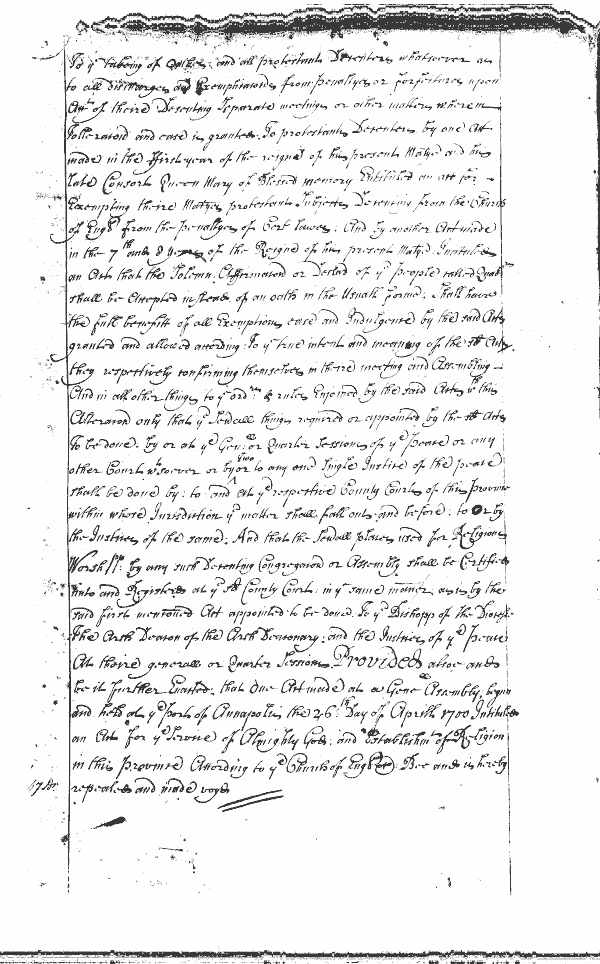 To ye takeing of Oathes: and all protestants Desenters whatsoever as
to all discharges and Exemptions from Penaltyes or forfeitures upon
Acctt of theire Desenting Separate meetings or other matters wherein
Tolleration and ease is granted To protestants Desenters by one Act
made in the first year of the reigne of his present Matye and his
late Consort Queen Mary of Blessed memory Entituled an act for
Exempting theire Matyes protestants Subjects Desenting from the Church
of Engld from the penaltyes of Cert Lawes: And by another Act made
in the 7th and 8 years of the Reigne of his present Matye Intituled
an Act that the Solemn Affirmation or Declad of ye people called Quakrs
shall be Accepted instead of an oath in the Usuall forme: Shall have
the full benefitt of all Exemptions ease and Indulgence by the said Acts
granted and allowed according: To ye true intent and meaning of the sd Acts,
they respectively conforming themselves in theire meeting and Assembling
And in all other things to ye ordrs & rules Enjoined by the said Acts wth this
Alteraion only that ye Sevall things required or appointed by the sd Acts
To be done: by or at ye Genll or Quarter Sessions of ye peace or any
other Court wtsoever or by or to any one two Single Justice of the peace
shall be done by: to: and at ye respective County Courts of this Province
within whose Jurisdiction ye matter shall fall out: and before: to Or by
the Justices of the same: And that the Sevall places used for Religious
Worshipp: by any such Desenting Congregation or Assembly shall be Certified
unto and Registered at ye sd County Court: in ye same manner as is by the
said first mentioned Act appointed to be done: To ye Bishopp of the Diocese
The Arch Deacon of the Arch Deaconary: and the Justices of ye Peace
At theire generall or Quarter Sessions Provided alsoe and
be it further Enacted: that One Act made at a Genell Assembly, begun
and held at ye port of Annapolis the 26th Day of Aprill 1700 Intituled
an Act for ye Service of Almighty God: and Establishmt of Religion
in this Province According to ye Church of Engld: Bee and is hereby
repealed and made voyd